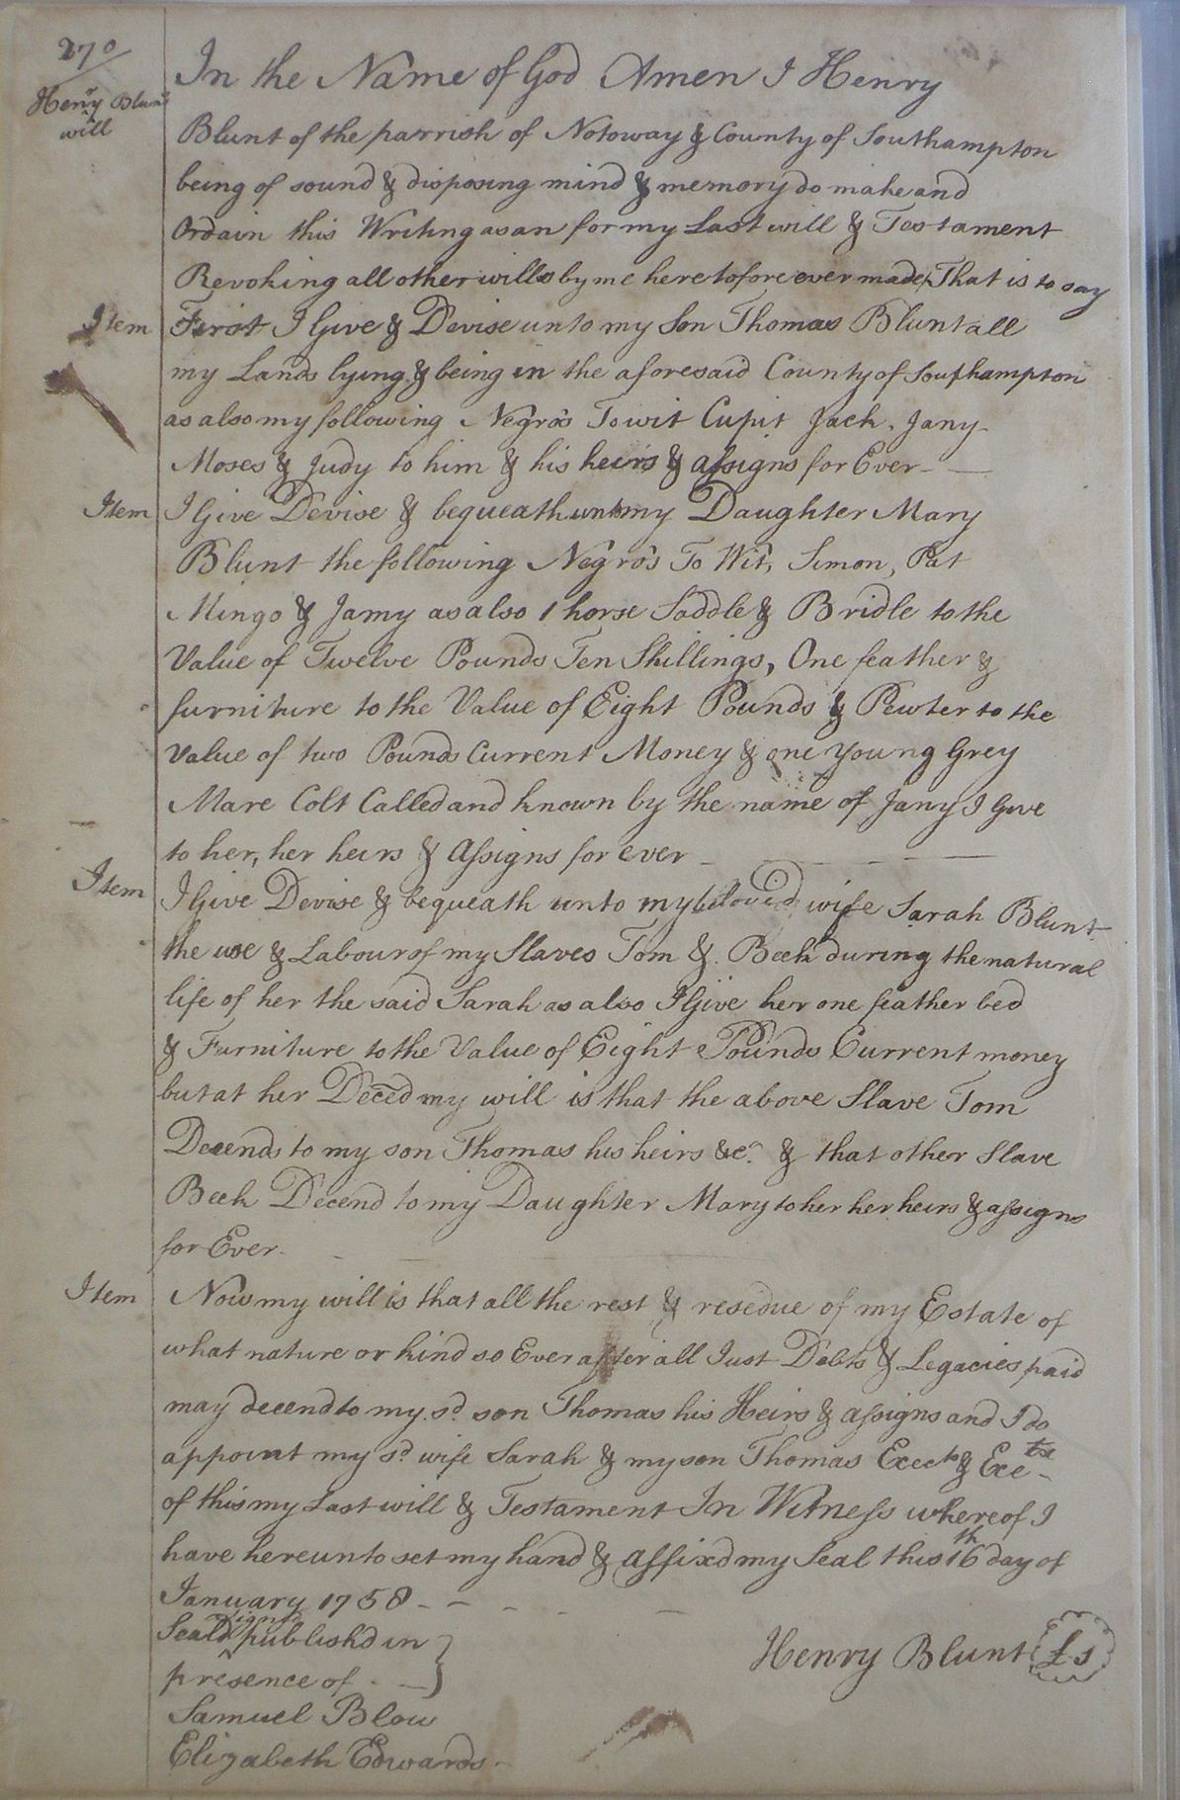 270
Henry Blunt
will
In the Name of God Amen I Henry
Blunt of the parrish of Notoway & County of Southampton
being of sound & disposing mind & memory do make and
Ordain this Writing as an for my Last will & Testament
Revoking all other wills by me heretofore ever made, That is to say
Item First I Give & Devise unto my Son Thomas Blunt all
my Lands lying & being in the aforesaid County of Southampton
as also my following Negros To wit Cupit Jack, Jany
Moses & Judy to him & his heirs & assigns for Ever
Item I Give Devise & bequeath unto my Daughter Mary
Blunt the following Negro's To Wit, Simon, Pat
Mingo & Jamy as also 1 horse Saddle & Bridle to the
Value of Twelve Pounds Ten Shillings, One feather &
furniture to the Value of Eight Pounds & Pewter to the
Value of two Pounds Current Money & one Young Grey
Mare Colt Called and known by the name of Jany I Give
to her, her heirs & Assigns for ever
Item I Give Devise & bequeath unto my beloved wife Sarah Blunt
the use & Labour of my Slaves Tom & Beck during the natural
life of her the said Sarah as also I Give her one feather bed
& Furniture to the Value of Eight Pounds Current money
but at her Deced my will is that the above Slave Tom
Decends to my son Thomas his heirs &c. & that other Slave
Beck Decend to my Daughter Mary to her her heirs & assigns
for Ever
Item Now my will is that all the rest & residue of my Estate of
what nature or kind so Ever after all Just Debts & Legacies paid
may decend to my sd. son Thomas his Heirs & assigns and I do
appoint my sd. wife Sarah & my son Thomas Execto & Exe trx
of this my Last will & Testament In Witness whereof I
have hereunto set my hand & affixd my Seal this 16th day of
January 1758
Seald Signd publishd in
presence of
Henry Blunt Ls
Samuel Blow
Elizabeth Edwards